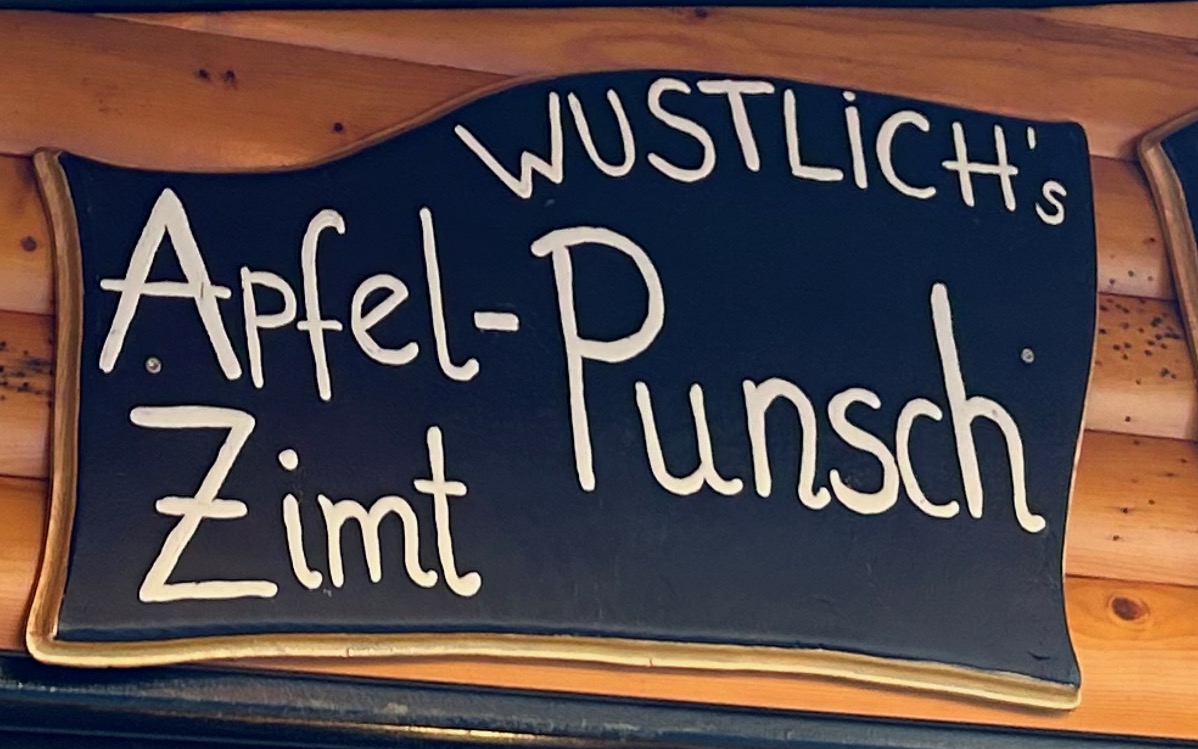 WUSTLiCH's
Apfel-Punsch
Zimt